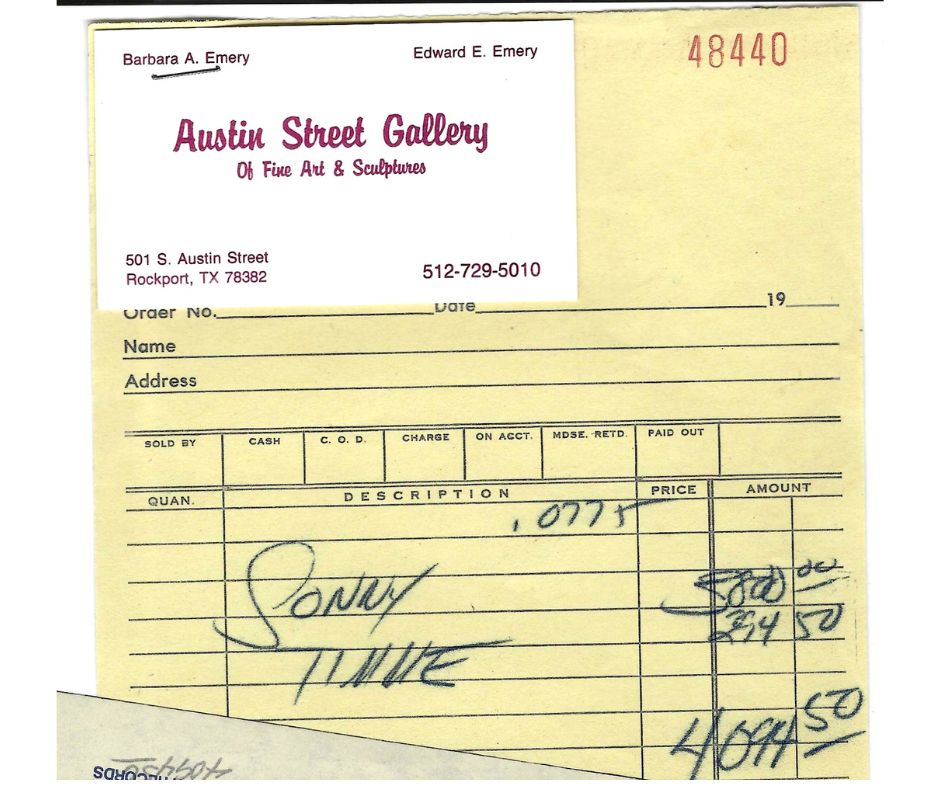 48440
Barbara A. Emery Edward E. Emery
Austin Street Gallery
Of Fine Art & Sculptures
501 S. Austin Street
Rockport, TX 78382 512-729-5010
Order No. Date 19
Name
Address
SOLD BY CASH C. O. D. CHARGE ON ACCT. MDSE. RETD. PAID OUT
QUAN. DESCRIPTION PRICE AMOUNT
.0775
SONNY 3800 00
294 50
TIMME
4094 50
409450